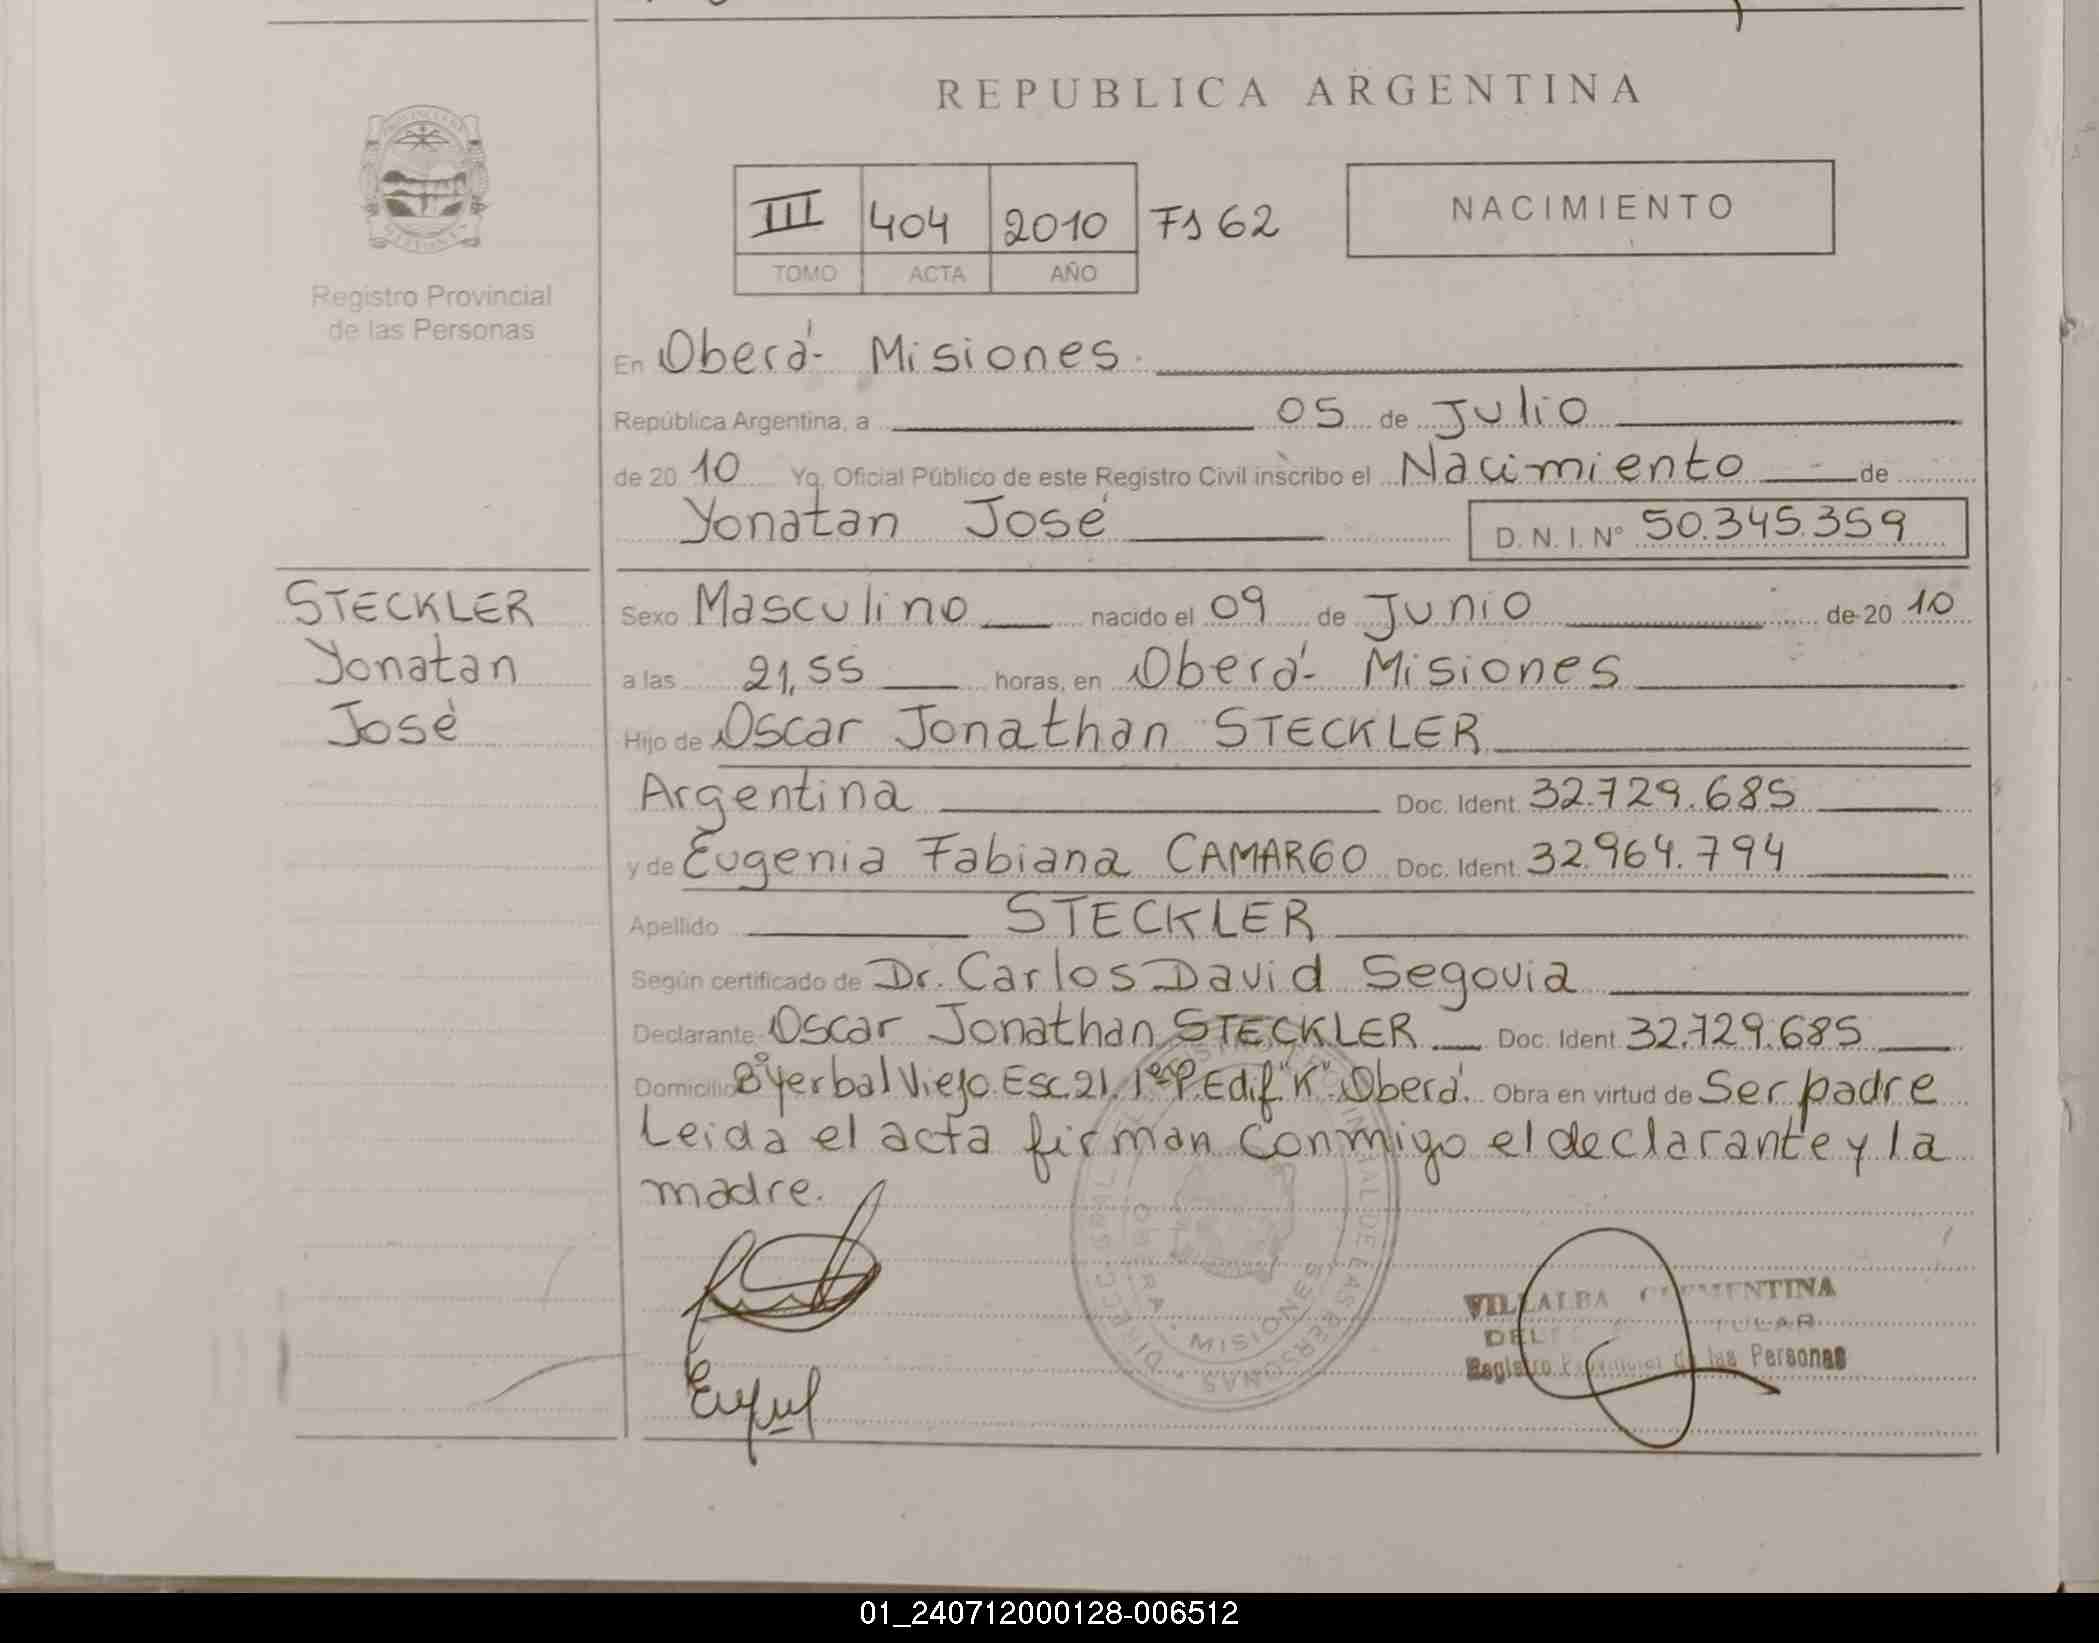 REPUBLICA ARGENTINA
III 404 2010 Fs 62
TOMO ACTA AÑO
NACIMIENTO
Registro Provincial
de las Personas
En Oberá- Misiones
República Argentina, a 05 de Julio
de 20 10 Yo, Oficial Público de este Registro Civil inscribo el Nacimiento de
Yonatan José D. N. I. Nº 50.345.359
STECKLER
Yonatan
José
Sexo Masculino nacido el 09 de Junio de 20 10
a las 21,55 horas, en Oberá- Misiones
Hijo de Oscar Jonathan STECKLER
Argentina Doc. Ident. 32.729.685
y de Eugenia Fabiana CAMARGO Doc. Ident. 32.964.794
Apellido STECKLER
Según certificado de Dr. Carlos David Segovia
Declarante Oscar Jonathan STECKLER Doc. Ident. 32.729.685
Domicilio Bº Yerbal Viejo Esc. 21. 1er P. Edif "K" Oberá. Obra en virtud de Ser padre
Leida el acta firman conmigo el declarante y la
madre.
MISIONES
VILLALBA CLEMENTINA
Registro Provincial de las Personas
01_240712000128-006512